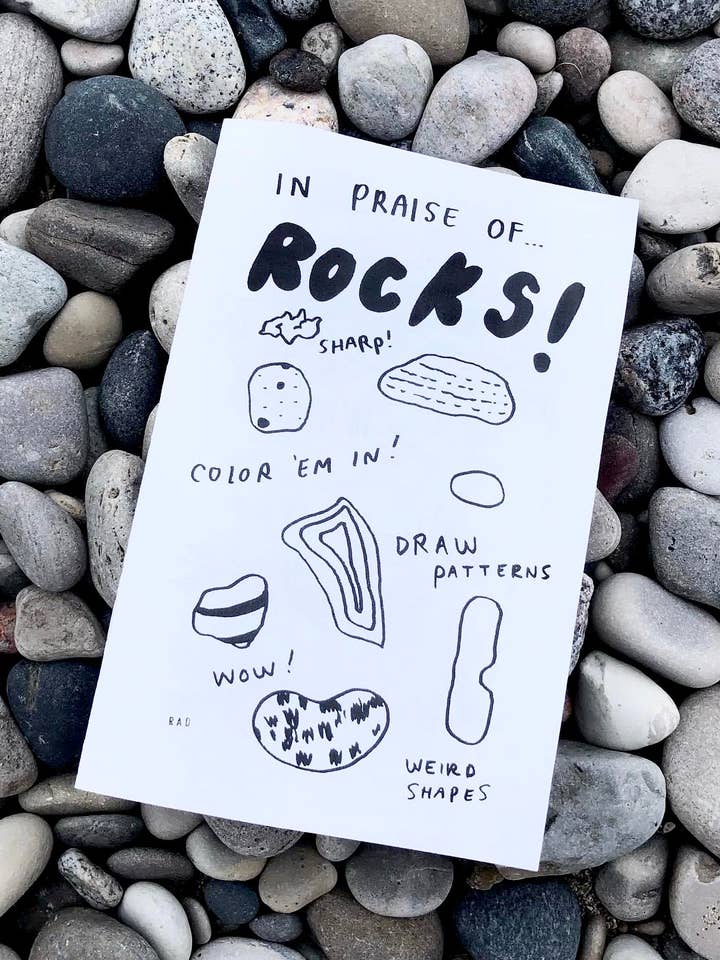 IN PRAISE OF...
ROCKS!
SHARP!
COLOR 'EM IN!
DRAW
PATTERNS
WOW!
RAD
WEIRD
SHAPES